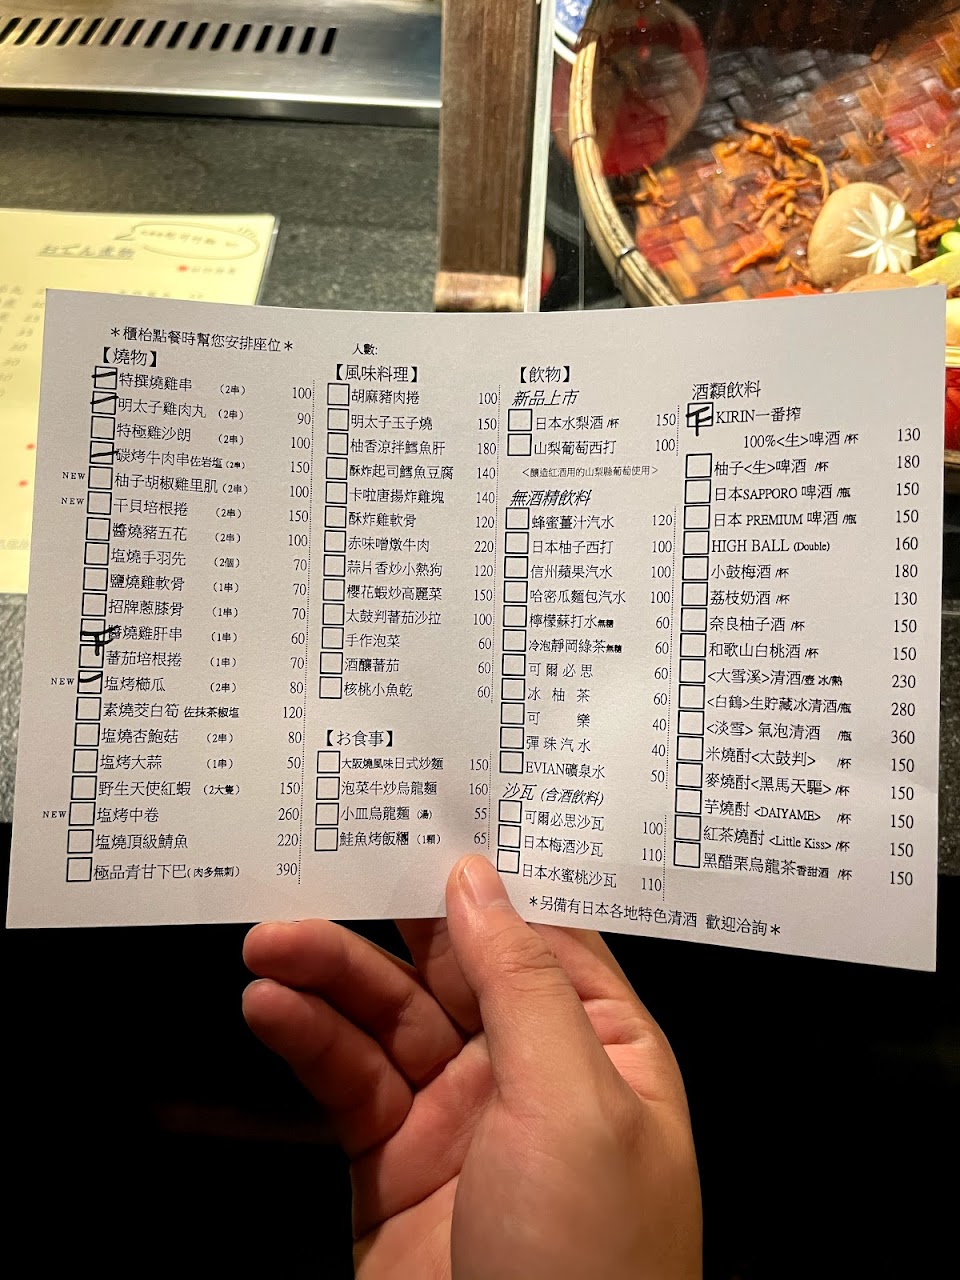 おでん煮物
＊櫃枱點餐時幫您安排座位＊
人數:
【燒物】
特撰燒雞串 （2串） 100
明太子雞肉丸 （2串） 90
特極雞沙朗 （2串） 100
碳烤牛肉串佐岩塩（2串） 150
NEW 柚子胡椒雞里肌（2串） 100
NEW 干貝培根捲 （2串） 150
醬燒豬五花 （2串） 100
塩燒手羽先 （2個） 70
鹽燒雞軟骨 （1串） 70
招牌蔥膝骨 （1串） 70
醬燒雞肝串 （1串） 60
蕃茄培根捲 （1串） 70
NEW 塩烤櫛瓜 （2串） 80
素燒茭白筍 佐抹茶椒塩 120
塩燒杏鮑菇 （2串） 80
塩烤大蒜 （1串） 50
野生天使紅蝦 （2大隻） 150
NEW 塩烤中卷 260
塩燒頂級鯖魚 220
極品青甘下巴(肉多無刺) 390
【風味料理】
胡麻豬肉捲 100
明太子玉子燒 150
柚香涼拌鱈魚肝 180
酥炸起司鱈魚豆腐 140
卡啦唐揚炸雞塊 140
酥炸雞軟骨 120
赤味噌燉牛肉 220
蒜片香炒小熱狗 120
櫻花蝦炒高麗菜 150
太鼓判蕃茄沙拉 100
手作泡菜 60
酒釀蕃茄 60
核桃小魚乾 60
【お食事】
大阪燒風味日式炒麵 150
泡菜牛炒烏龍麵 160
小皿烏龍麵 （湯） 55
鮭魚烤飯糰 （1顆） 65
【飲物】
新品上市
日本水梨酒 /杯 150
山梨葡萄西打 100
＜釀造紅酒用的山梨縣葡萄使用＞
無酒精飲料
蜂蜜薑汁汽水 120
日本柚子西打 100
信州蘋果汽水 100
哈密瓜麵包汽水 100
檸檬蘇打水無糖 60
冷泡靜岡綠茶無糖 60
可爾必思 60
冰柚茶 60
可樂 40
彈珠汽水 40
EVIAN礦泉水 50
沙瓦 (含酒飲料)
可爾必思沙瓦 100
日本梅酒沙瓦 110
日本水蜜桃沙瓦 110
酒類飲料
KIRIN一番搾
100%<生>啤酒 /杯 130
柚子<生>啤酒 /杯 180
日本SAPPORO 啤酒 /瓶 150
日本 PREMIUM 啤酒 /瓶 150
HIGH BALL (Double) 160
小鼓梅酒 /杯 180
荔枝奶酒 /杯 130
奈良柚子酒 /杯 150
和歌山白桃酒 /杯 150
<大雪溪>清酒/壺 冰/熱 230
<白鶴>生貯藏冰清酒/瓶 280
<淡雪> 氣泡清酒 /瓶 360
米燒酎<太鼓判> /杯 150
麥燒酎<黑馬天驅> /杯 150
芋燒酎 <DAIYAME> /杯 150
紅茶燒酎 <Little Kiss> /杯 150
黑醋栗烏龍茶香甜酒 /杯 150
＊另備有日本各地特色清酒 歡迎洽詢＊